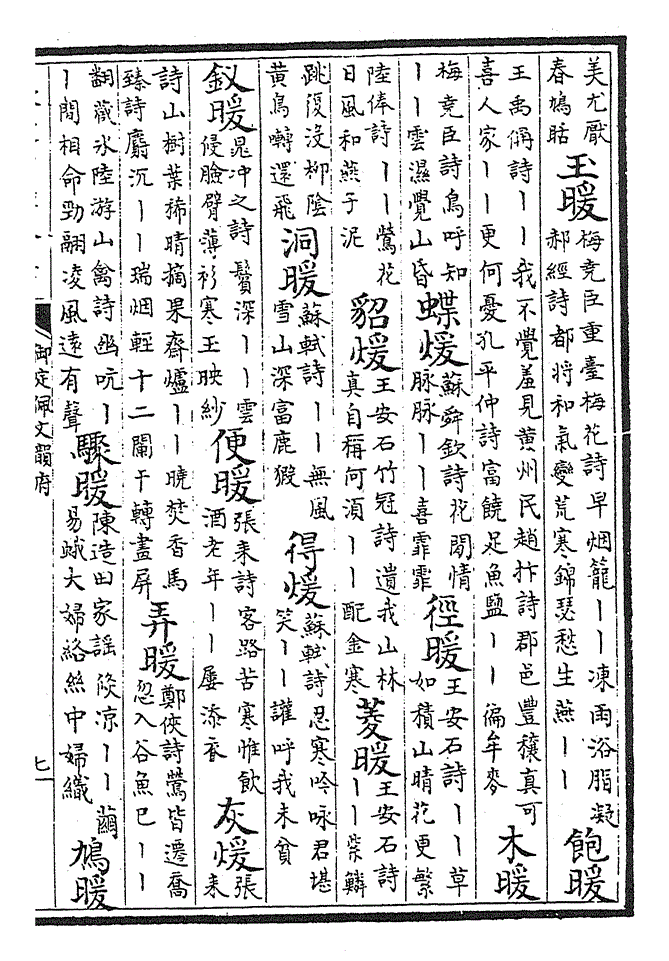 美尤厭
春鳩聒
玉暖
梅堯臣重臺梅花詩早烟籠丨丨凍雨浴脂凝
郝經詩都將和氣變荒寒錦瑟愁生燕丨丨
飽暖
王禹偁詩丨丨我不覺羞見黃州民趙抃詩郡邑豐穰真可
喜人家丨丨更何憂孔平仲詩富饒足魚鹽丨丨徧牟麥
木暖
梅堯臣詩鳥呼知
丨丨雲濕覺山昏
蝶煖
蘇舜欽詩花閒情
脉脉丨丨喜霏霏
徑暖
王安石詩丨丨草
如積山晴花更繁
陸俸詩丨丨鶯花
日風和燕子泥
貂煖
王安石竹冠詩遺我山林
真自稱何須丨丨配金寒
菱暖
王安石詩
丨丨紫鱗
跳復沒柳陰
黃鳥囀還飛
洞暖
蘇軾詩丨丨無風
雪山深富鹿猳
得煖
蘇軾詩忍寒吟咏君堪
笑丨丨讙呼我未貧
釵暖
晁冲之詩鬢深丨丨雲
侵臉臂薄衫寒玉映紗
便暖
張耒詩客路苦寒惟飲
酒老年丨丨屢添衣
灰煖
張
耒
詩山樹葉稀晴摘果齋爐丨丨曉焚香馬
臻詩麝沉丨丨瑞烟輕十二闌干轉畫屏
弄暖
鄭俠詩鶯皆遷喬
忽入谷魚已丨丨
翻藏氷陸游山禽詩幽吭丨
丨間相命勁翮凌風遠有聲
驟暖
陳造田家謠倐凉丨丨繭
易蛾大婦絡絲中婦織
鳩暖
御定佩文韻府
七